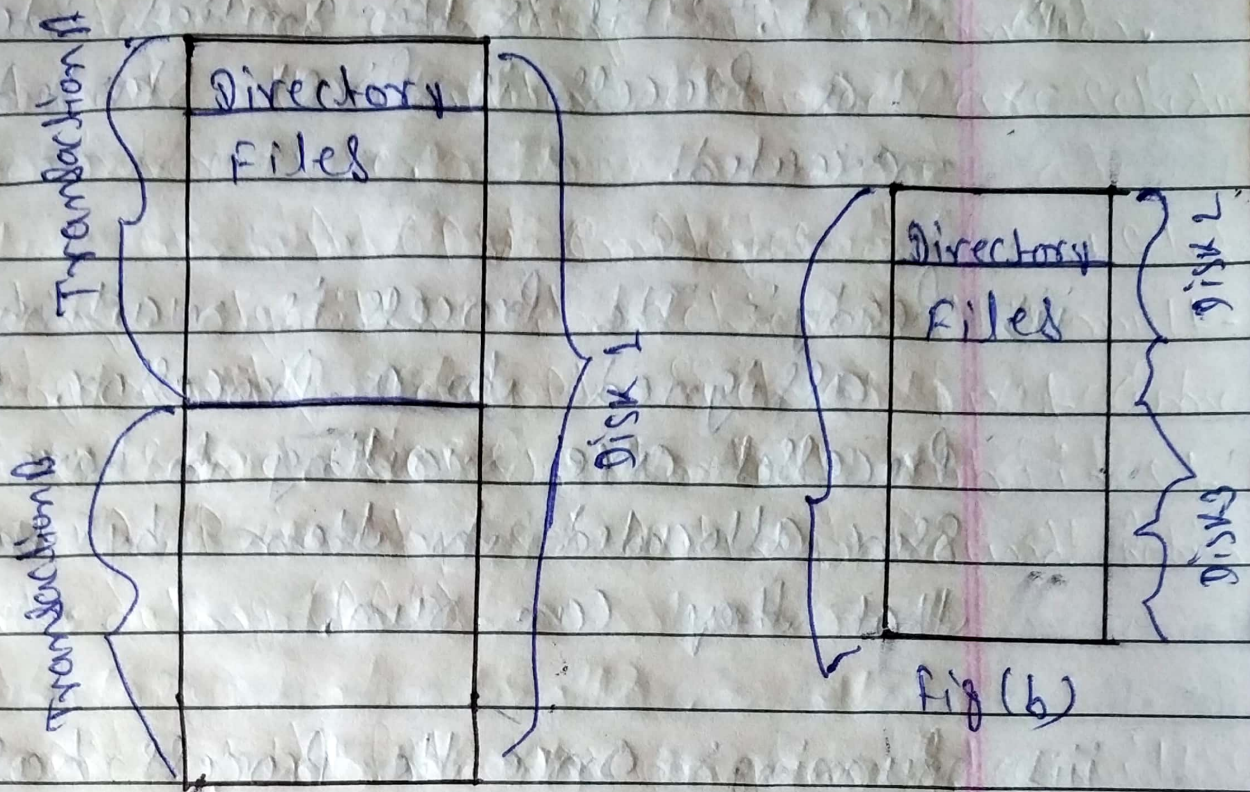 TransactionA
Directory
Files
TransactionA
Disk 1
Directory
Files
Disk 2
Disk3
Fig (b)